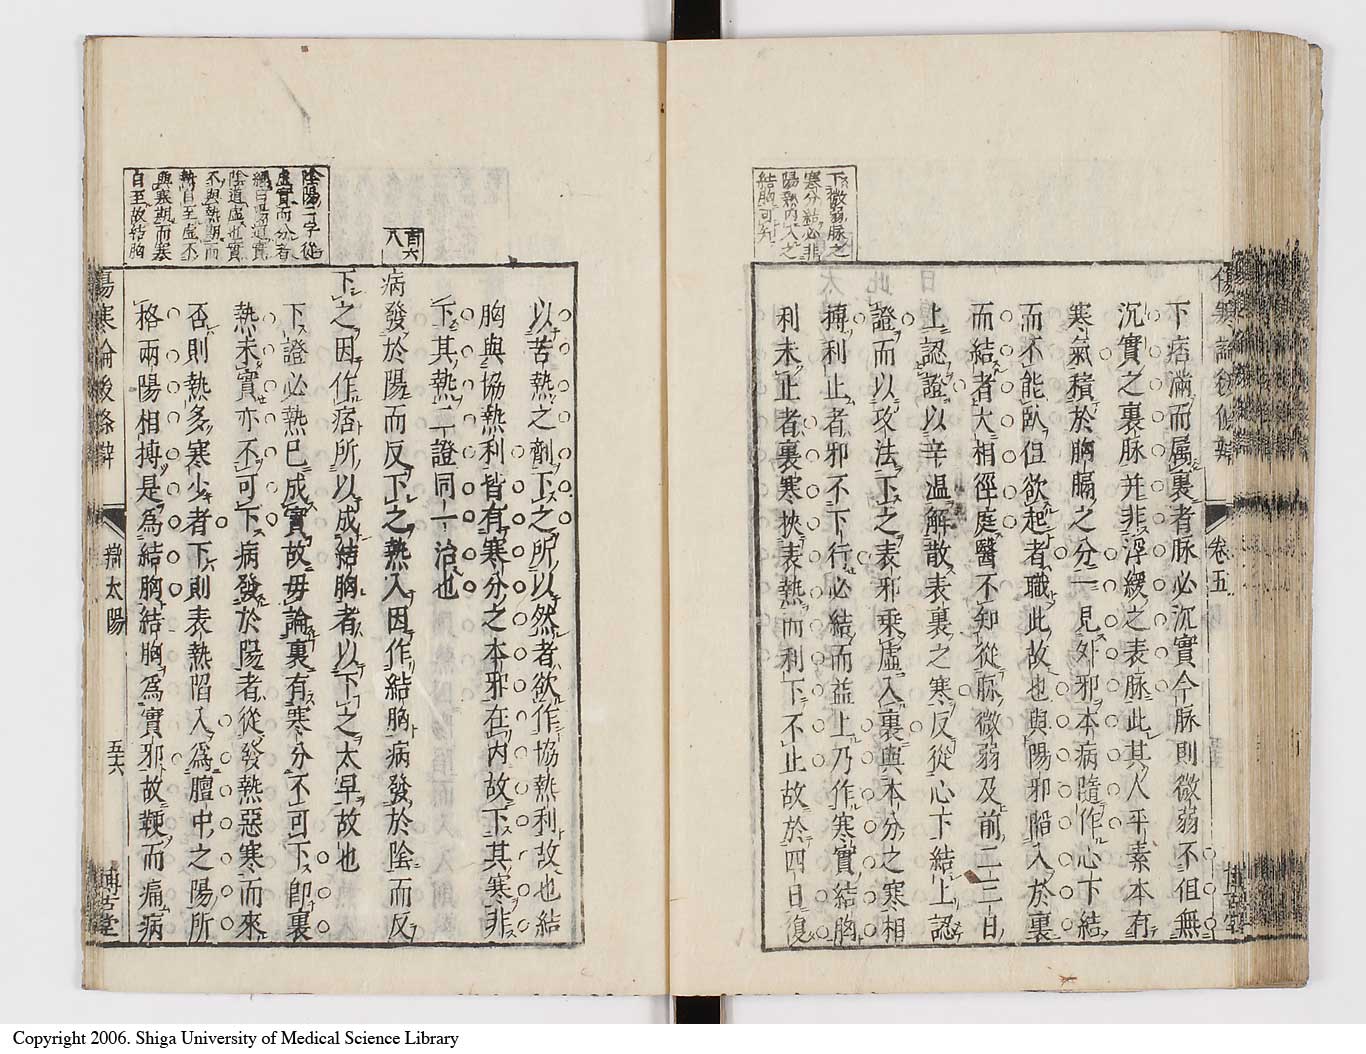 下微弱脉之
寒分結必非
陽熱内入之
結胸可知
下痞滿而属裏者脉必沉實今脉則微弱不但無
沉實之裏脉并非浮緩之表脉此其人平素本有
寒氣積於胸膈之分一見外邪本病隨作心下結
而不能臥但欲起者職此故也與陽邪陷入於裏
而結者大相徑庭醫不知從脉微弱及前二三日
上認證以辛温解散表裏之寒反從心下結上認
證而以攻法下之表邪乗虚入裏與本分之寒相
搏利止者邪不下行必結而益上乃作寒實結胸
利未止者裏寒挾表熱而利下不止故於四日復
卷五
陰陽二字從
虚實而分者
陰道虚也實
不與熱期而
熱自至虚不
與寒期而寒
自至故結胸
百六
八
以苦熱之劑下之所以然者欲作協熱利故也結
胸與協熱利皆有寒分之本邪在内故下其寒非
下其熱二證同一治也
病發於陽而反下之熱入因作結胸病發於陰而反
下之因作痞所以成結胸者以下之太早故也
下證必熱已成實故毋論裏有寒分不可下卽裏
熱未實亦不可下病發於陽者從發熱惡寒而來
否則熱多寒少者下則表熱陷入爲膻中之陽所
格兩陽相搏是爲結胸結胸爲實邪故鞕而痛病
傷寒論後條辨
辨太陽
五十六
博古堂
Copyright 2006. Shiga University of Medical Science Library